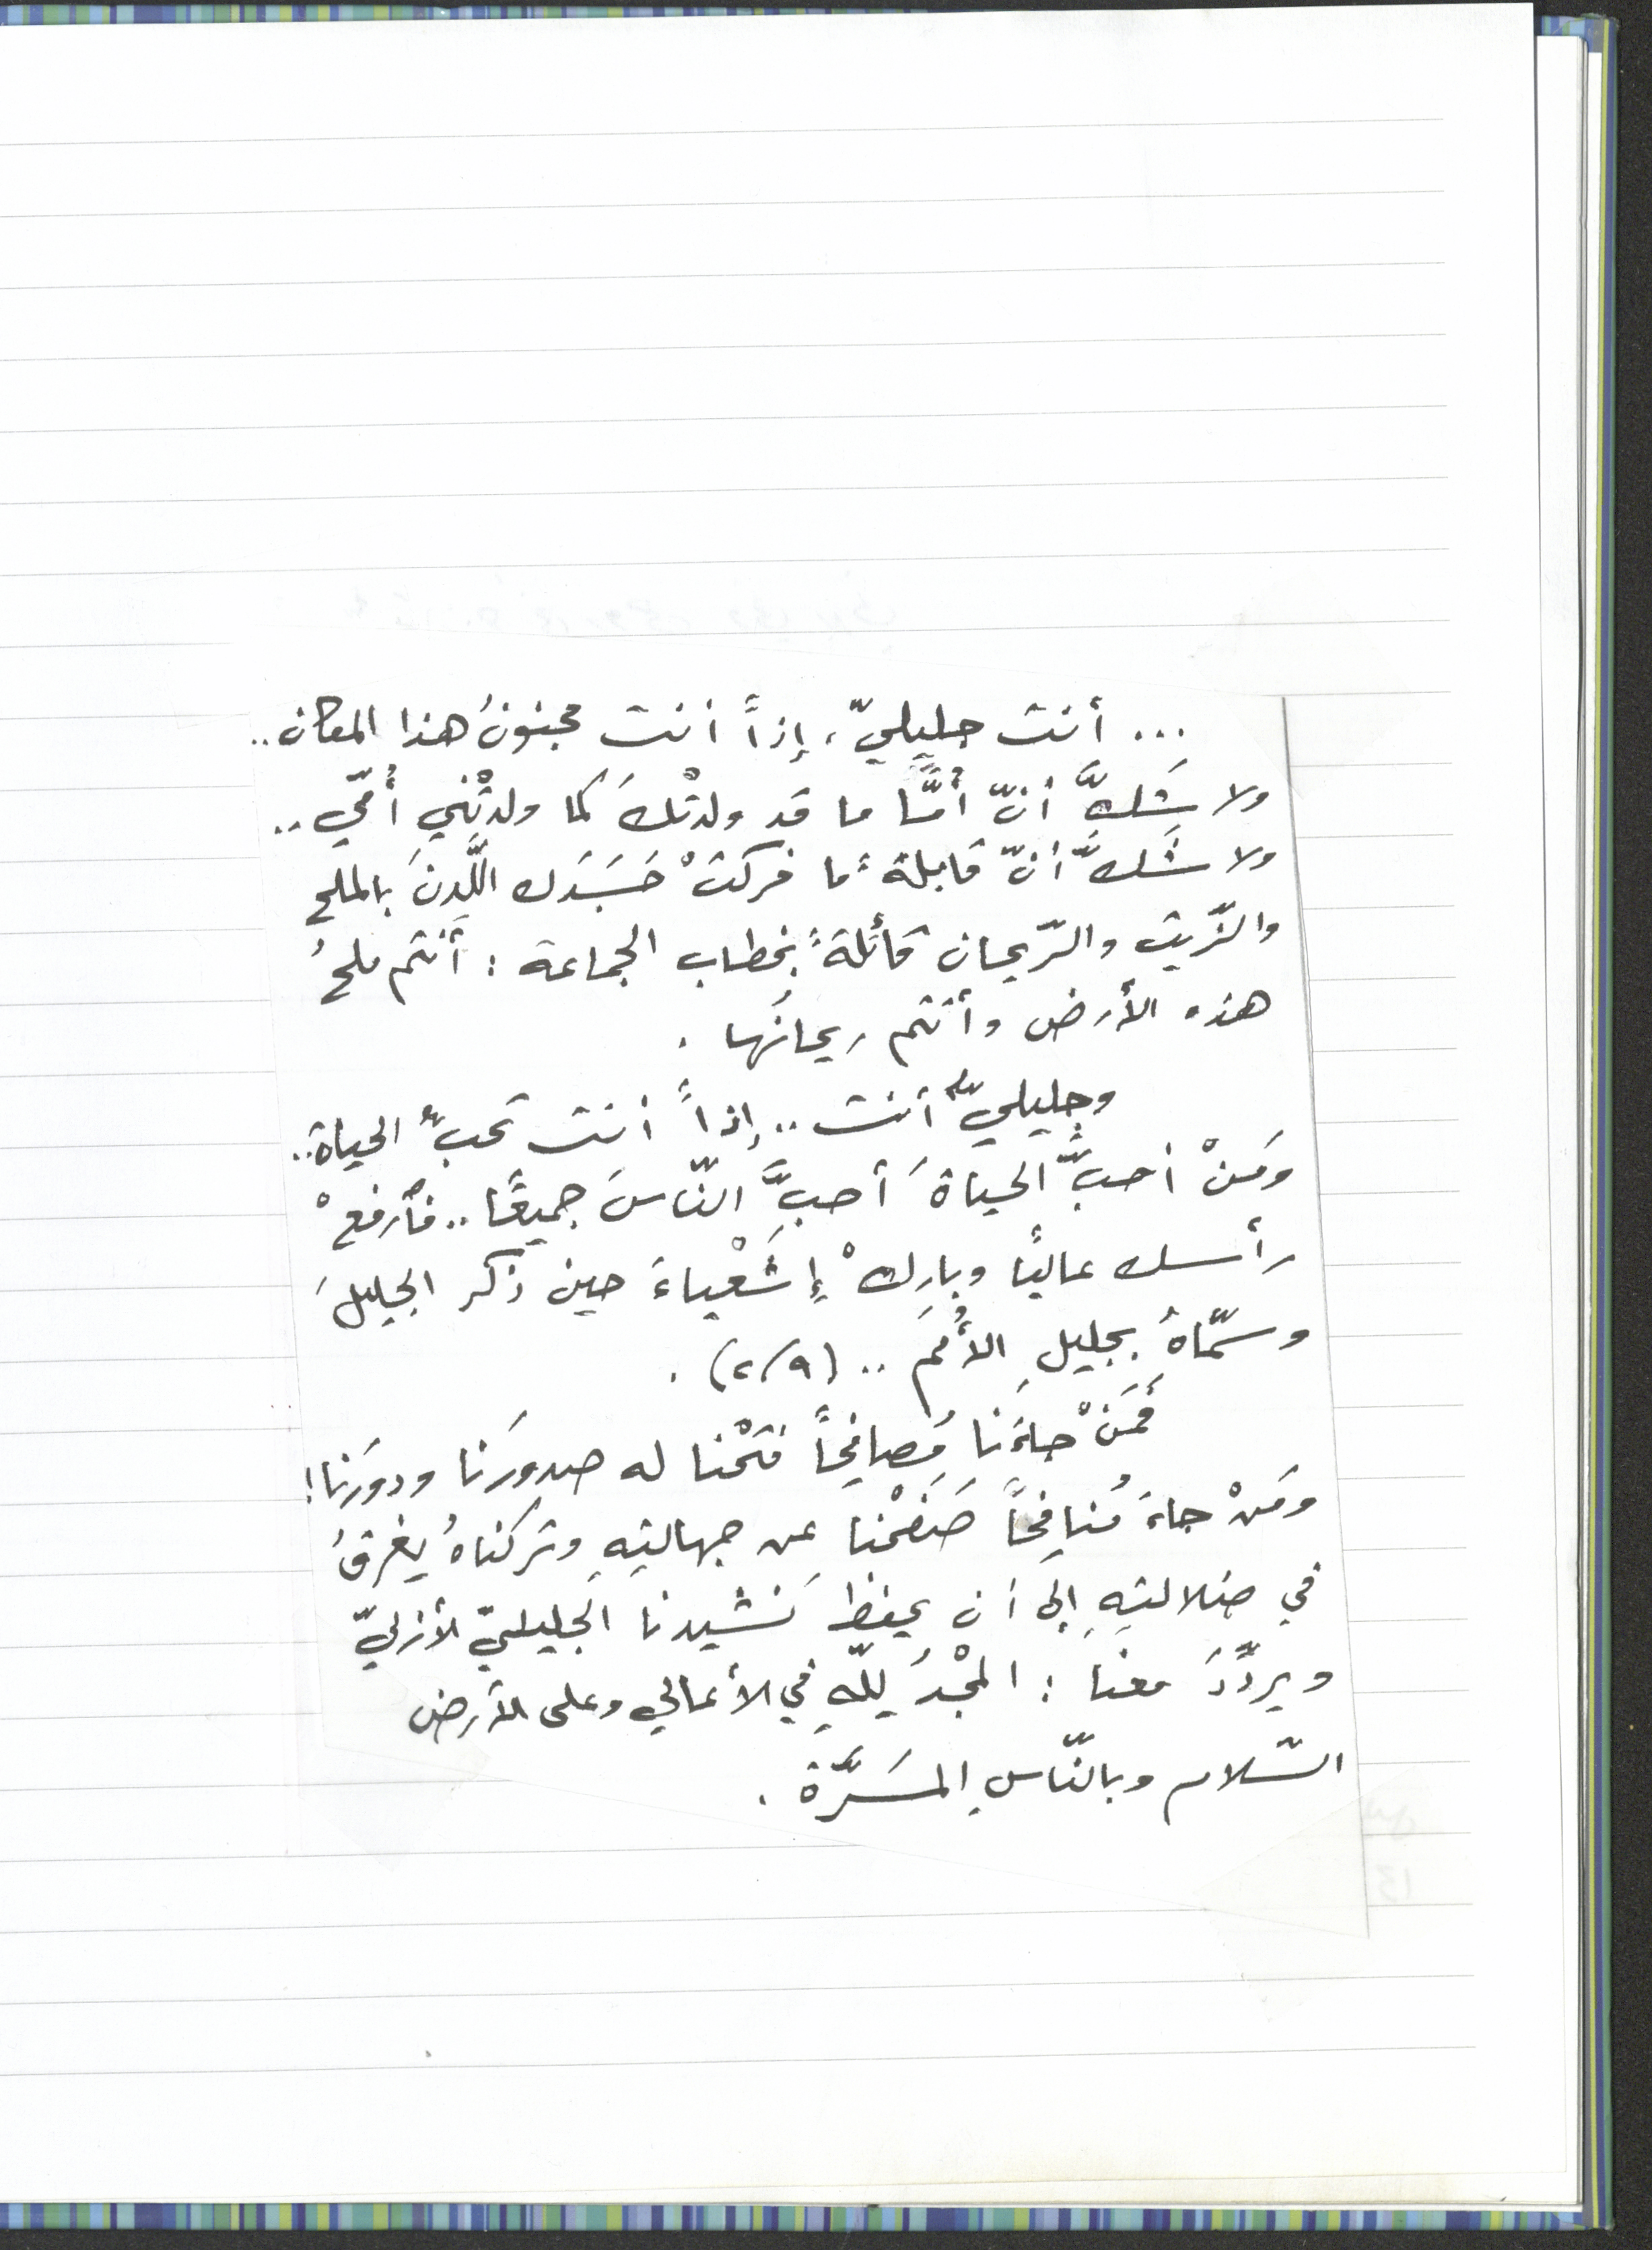 ... أنت جليليّ، إذاً أنت مجنونُ هذا المكان..
ولا شَكَّ أنّ أُمًّا ما قد ولدتْكَ كما ولدتْني أُمّي..
ولا شَكَّ أنّ قابلةً ما فركتْ جَسَدَك اللَّدِنَ بالملح
والزّيت والرّيحان قائلةً بخطاب الجماعة : أنتم ملحُ
هذه الأرض وأنتم ريحانُها .
وجليليٌّ أنت .. إذاً أنت تحبُّ الحياة..
ومَنْ أحبَّ الحياةَ أحبَّ النّاسَ جميعًا .. فٱرفعْ
رأسك عاليًا وباركْ إشَعْياءَ حين ذكر الجليلَ
وسمّاهُ بجليلِ الأُمَم .. (٩/٢) .
فمَنْ جاءَنا مُصافِحاً فتَحْنا له صدورَنا ودورَنا!
ومَنْ جاءَ مُنافِحاً صَفَحْنا عن جهالتِهِ وتركناهُ يغرقُ
في ضلالتِهِ إلى أن يحفظَ نَشيدنا الجليليّ الأزليّ
ويردِّدَ معنا : المجْدُ لِلّهِ في الأعالي وعلى الأرض
السّلام وبالنّاسِ المسَرَّة .